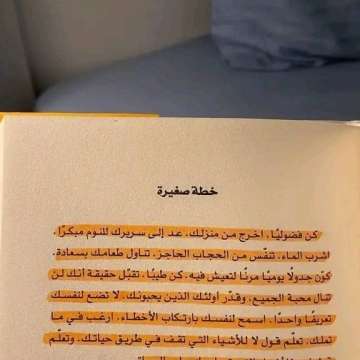 خطة صغيرة
كن فضوليًا. اخرج من منزلك. عد إلى سريرك للنوم مبكرًا.
اشرب الماء. تنفّس من الحجاب الحاجز. تناول طعامك بسعادة.
كوّن جدولًا يوميًا مرنًا لتعيش فيه. كن طيبًا. تقبّل حقيقة أنك لن
تنال محبة الجميع. وقدّر أولئك الذين يحبونك. لا تضع لنفسك
تعريفًا واحدًا. اسمح لنفسك بارتكاب الأخطاء. ارغب في ما
تملك. تعلّم قول لا للأشياء التي تقف في طريق حياتك. وتعلّم